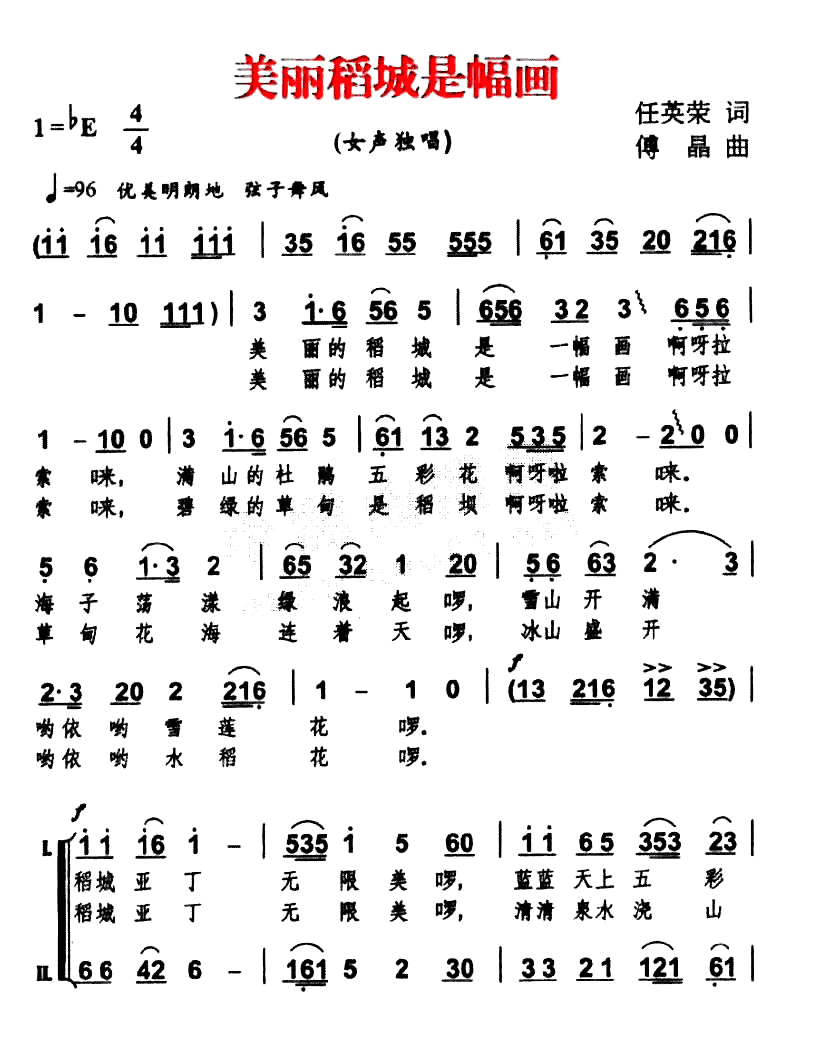 美丽稻城是幅画
1=♭E 4/4
(女声独唱)
任英荣 词
傅 晶 曲
♩=96 优美明朗地 弦子舞风
(11 16 11 111 | 35 16 55 555 | 61 35 20 216 |
1 - 10 111) | 3 1·6 56 5 | 656 32 3 656 |
美 丽的稻 城 是 一幅 画 啊呀拉
美 丽的稻 城 是 一幅 画 啊呀拉
1 - 10 0 | 3 1·6 56 5 | 61 13 2 535 | 2 - 2 0 0 |
索 咪, 满 山的杜 鹃 五 彩 花 啊呀啦索 咪.
索 咪, 碧 绿的草 甸 是 稻 坝 啊呀啦索 咪.
5 6 1·3 2 | 65 32 1 20 | 56 63 2· 3 |
海 子 荡 漾 绿 浪 起 啰, 雪山开 满
草 甸 花 海 连 着 天 啰, 冰山盛 开
f
2·3 20 2 216 | 1 - 1 0 | (13 216 12 35) |
哟依 哟 雪 莲 花 啰.
哟依 哟 水 稻 花 啰.
f
I. 11 16 1 - | 535 1 5 60 | 11 65 353 23 |
稻城 亚 丁 无 限 美 啰, 蓝蓝 天上 五 彩
稻城 亚 丁 无 限 美 啰, 清清 泉水 浇 山
II. 66 42 6 - | 161 5 2 30 | 33 21 121 61 |